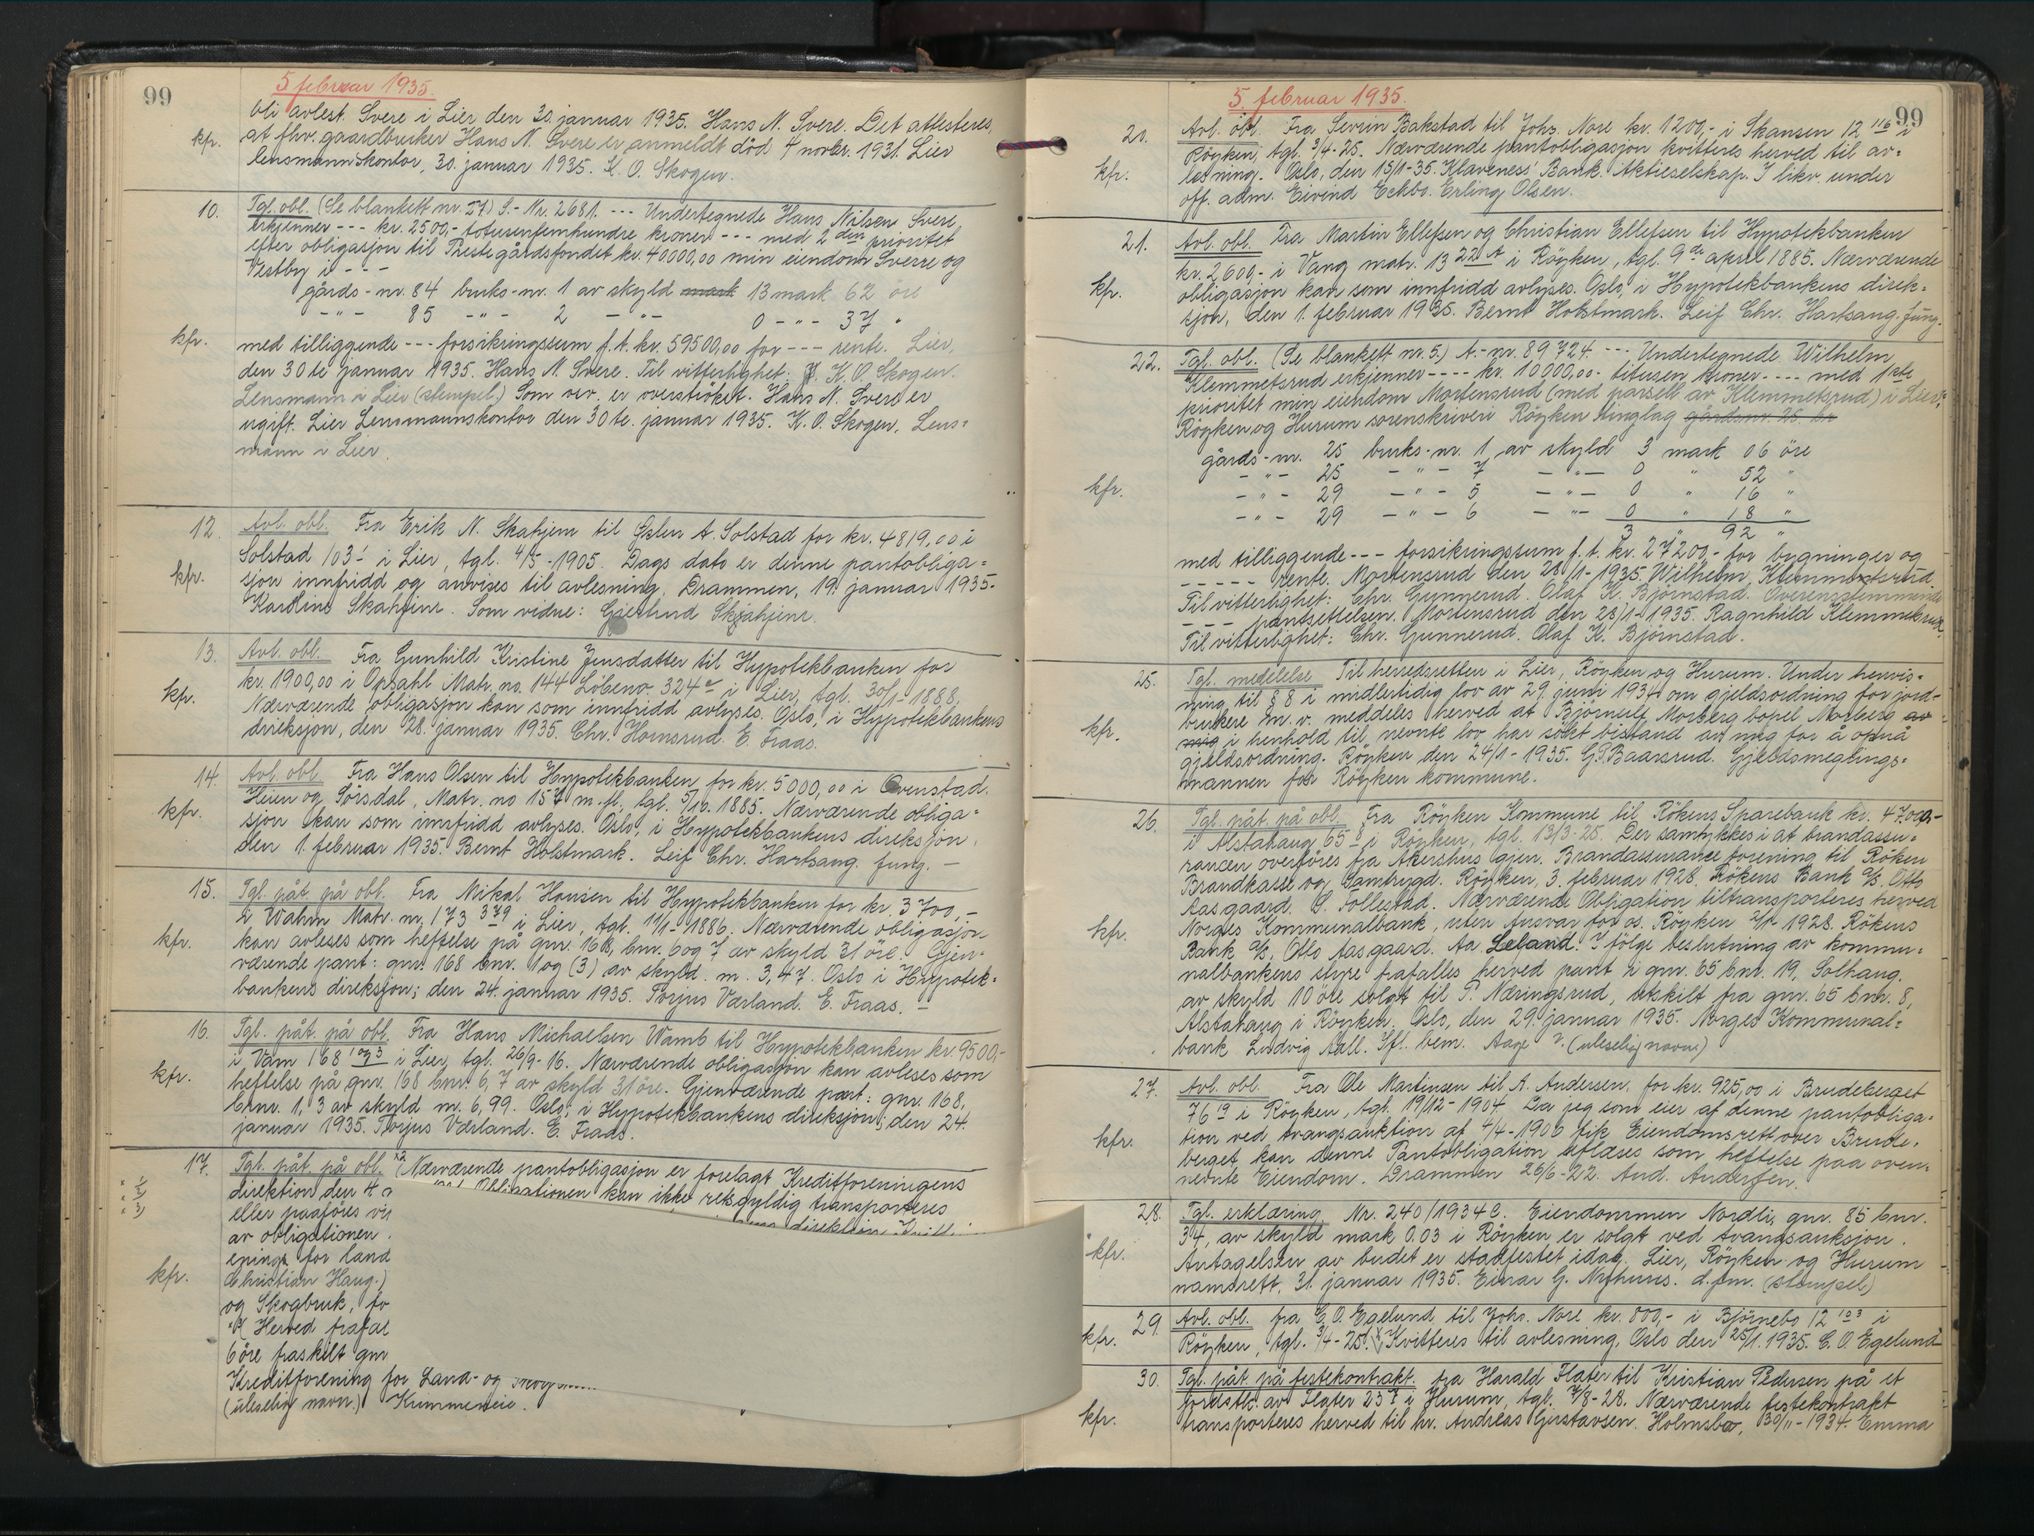 99
5 februar 1935.
bli avlest. Svere i Lier den 30. januar 1935. Hans N. Svere. Det attesteres,
kfr. at fhv. gaardbruker Hans N. Svere er anmeldt död 4 novbr. 1931. Lier
lensmannskontor, 30. januar 1935. K. O. Skogen.
10. Tgl. obl. (Se blankett nr. 27) S.- Nr. 2681. --- Undertegnede Hans Nilsen Svere,
erkjenner --- kr. 2500,- totusenfemhundre kroner --- med 2 den prioritet
efter obligasjon til Prestegårdsfondet kr. 40000,00 min eiendom Sverre og
Vestby i ---
gårds-nr. 84 bruks-nr. 1 av skyld mark 13 mark 62 öre
-"- 85 -"- 2 -"- 0 -"- 37 "
kfr. med tilliggende --- forsikringssum f. t. kr. 59500,00 for --- rente. Lier,
den 30te januar 1935. Hans N. Svere. Til vitterlighet: K. O. Skogen.
Lensmann i Lier (stempel.) Som ovr. er overströket. Hans N. Svere er
ugift. Lier Lensmannskontor den 30te. januar 1935. K. O. Skogen. Lens-
mann i Lier.
12. Avl. obl. Fra Erik N. Skahjem til Gslen A. Solstad for kr. 4819,00 i
Solstad 103 1 i Lier, tgl. 4/5-1905. Dags dato er denne pantobliga-
kfr. sjon innfridd og anvises til avlesning. Drammen, 19. januar 1935.
Karoline Skahjem. Som vidne: Gjertrud Skjahjem.
13. Avl. obl. Fra Gunhild Kristine Jensdatter til Hypotekbanken for
kfr. kr. 1900,00 i Opsahl Matr. no. 144 Löbeno. 324 a i Lier, tgl. 30/1-1888,
Nærværende obligasjon kan som innfridd avlyses. Oslo, i Hypotekbankens
direksjon, den 28. januar 1935. Chr. Homsrud. E. Fraas.
14. Avl. obl. Fra Hans Olsen til Hypotekbanken for kr. 5000,00 i Ovenstad,
kfr. Heien og Sørsdal, Matr. no 157 m. fl. tgl. 5/10. 1885. Nærværende obliga-
sjon kan som innfridd avlyses. Oslo, i Hypotekbankens direksjon,
den 1. februar 1935. Bernt Holstmark. Leif Chr. Hartsang. fung. -
15. Tgl. påt. på obl. Fra Nikal Hansen til Hypotekbanken for kr. 3700,-
i Wahm Matr. nr. 173 379 i Lier, tgl. 11/1-1886. Nærværende obligasjon
kfr. kan avleses som heftelse på gnr. 168, bnr. 6 og 7 av skyld 31 öre. Gjen-
værende pant: gnr. 168 bnr. 1 og (3) av skyld m. 3,47. Oslo i Hypotek-
bankens direksjon; den 24. januar 1935. Torjus Værland. E. Fraas. -
16. Tgl. påt. på obl. Fra Hans Michaelsen Wamb til Hypotekbanken kr 9500,-
i Vam 168 1 og 3 i Lier, tgl. 26/9-16. Nærværende obligasjon kan avleses som
kfr. heftelse på gnr. 168 bnr. 6, 7 av skyld 31 öre. Gjenværende pant: gnr. 168,
bnr. 1, 3 av skyld m. 6,99. Oslo, i Hypotekbankens direksjon, den 24.
januar 1935. Torjus Værland. E. Fraas.
17. Tgl. påt. på obl. Nærværende pantobligasjon er forelagt Kreditforeningens
direktion den 4. Obligationen kan ikke retsgyldig transporteres
eller paaføres
av obligationen
enings for land
kfr. Christian Haug.)
og Skogbruk, fo
Herved frafal
6 öre fraskilt gnr
Kreditforening for Land- og
(uleselig navn.) Kummeneie.
99
5. februar 1935.
20. Avl. obl. Fra Sevrin Bakstad til Johs. Nore kr. 1200,- i Skansen 12 116 i
kfr. Röyken, tgl. 3/4-25. Nærværende pantobligasjon kvitteres herved til av-
lesning. Oslo, den 15/1-35. Klaveness' Bank Aktieselskap. I likv. under
off. adm. Eivind Eckbo. Erling Olsen.
21. Avl. obl. Fra Martin Ellefsen og Christian Ellefsen til Hypotekbanken
kfr. kr. 2,600,- i Vang matr. 13 22 A i Röyken, tgl. 9 de april 1885. Nærværende
obligasjon kan som innfridd avlyses. Oslo, i Hypotekbankens direk-
sjon, den 1. februar 1935. Bernt Holstmark. Leif Chr. Hartsang. fung.
22. Tgl. obl. (Se blankett nr. 5.) A.-nr. 89724. --- Undertegnede Wilhelm
Klemmetsrud erkjenner ---- kr. 10000,00- titusen kroner ---- med 1ste
prioritet min eiendom Mortensrud (med parsell av Klemmetsrud) i Lier,
Röyken og Hurum sorenskriveri Röyken tinglag gårdsnr. 25 br
gårds-nr. 25 bruks-nr. 1 av skyld 3 mark 06 öre
-"- 25 -"- 7 -"- 0 " 52 "
kfr. -"- 29 -"- 5 -"- 0 " 16 "
-"- 29 -"- 6 -"- 0 " 18 "
3 " 92 "
med tilliggende --- forsikringssum f. t. kr. 27200,- for bygninger og
----- rente. Mortensrud den 28/1-1935. Wilhelm Klemmetsrud.
Til vitterlighet: Chr. Gunnerud. Olaf K. Björnstad. Overensstemmende
---- pantsettelsen. Mortensrud den 28/1-1935. Ragnhild Klemmetsrud
Til vitterlighet: Chr. Gunnerud. Olaf K. Björnstad.
25. Tgl. meddelelse Til herredsretten i Lier, Röyken og Hurum. Under henvis-
ning til § 8 i midlertidig lov av 29. juni 1934 om gjeldsordning for jord-
kfr. brukere m. v. meddeles herved at Björnulf Morberg bopel Morberg av
mig i henhold til nevnte lov har sökt bistand av mig for å opnå
gjeldsordning. Röyken den 24/1-1935. G. P. Baarsrud. Gjeldsmeglings-
mannen for Röyken kommune.
26. Tgl. påt. på obl. Fra Röyken Kommune til Rökens Sparebank kr. 47000,-
i Alstahaug 65 8 i Röyken, tgl. 13/3-25. Der samtykkes i at brandassu-
rancen overføres fra Akershus gjen. Brandassurance forening til Röken
Brandkasse og Samtrygd. Röyken, 3. februar 1928. Rökens Bank a/s. Otto
Aasgaard. S. Follestad. Nærværende Obligation tiltransporteres herved
kfr. Norges Kommunalbank, uten ansvar for os. Röyken 2/4 1928. Rökens
Bank a/s, Otto Aasgaard. Aa. Leland. I følge beslutning av kommu-
nalbankens styre frafalles herved pant i gnr. 65 bnr. 19, Solhaug,
av skyld 10 öre solgt til P. Næringsrud, utskilt fra gnr. 65 bnr. 8,
Alstahaug i Röyken. Oslo, den 29. januar 1935. Norges Kommunal-
bank Ludvig Aall. Ifl. bem. Aage v. (uleselig navn)
27. Avl. obl. Fra Ole Martinsen til A. Andersen, for kr. 925,00 i Brudeberget
76 19 i Röyken, tgl. 19/12-1904. Da jeg som eier af denne pantobliga-
kfr. tion ved tvangsauktion af 4/4-1906 fik Eiendomsrett over Brude-
berget kan denne Pantobligation aflæses som heftelse paa oven-
nevnte Eiendom. Drammen 26/6-22. And. Anderssen.
28. Tgl. erklæring Nr. 240/1934 C. Eiendommen Nordli, gnr. 85 bnr.
kfr. 34, av skyld mark 0.03 i Röyken er solgt ved tvangsauksjon.
Antagelsen av budet er stadfestet idag. Lier, Röyken og Hurum
namsrett, 31. januar 1935. Einar G. Nyhuus. d.fm. (stempel)
29. Avl. obl. fra C. O. Egelund til Johs. Nore kr. 800,- i Björnebo 12 123 i
kfr. Röyken, tgl. 3/4-25. Kvitteres til avlesning, Oslo den 25/1. 1935. C. O. Egelund
30. Tgl. påt. på festekontrakt. fra Harald Flater til Kristian Pedersen på et
jordstk. av Flater 23 7 i Hurum, tgl. 7/8-28. Nærværende festekontrakt
kfr. transporteres herved til hr. Andreas Gustavsen. Holmsbo, 30/11-1934. Emma